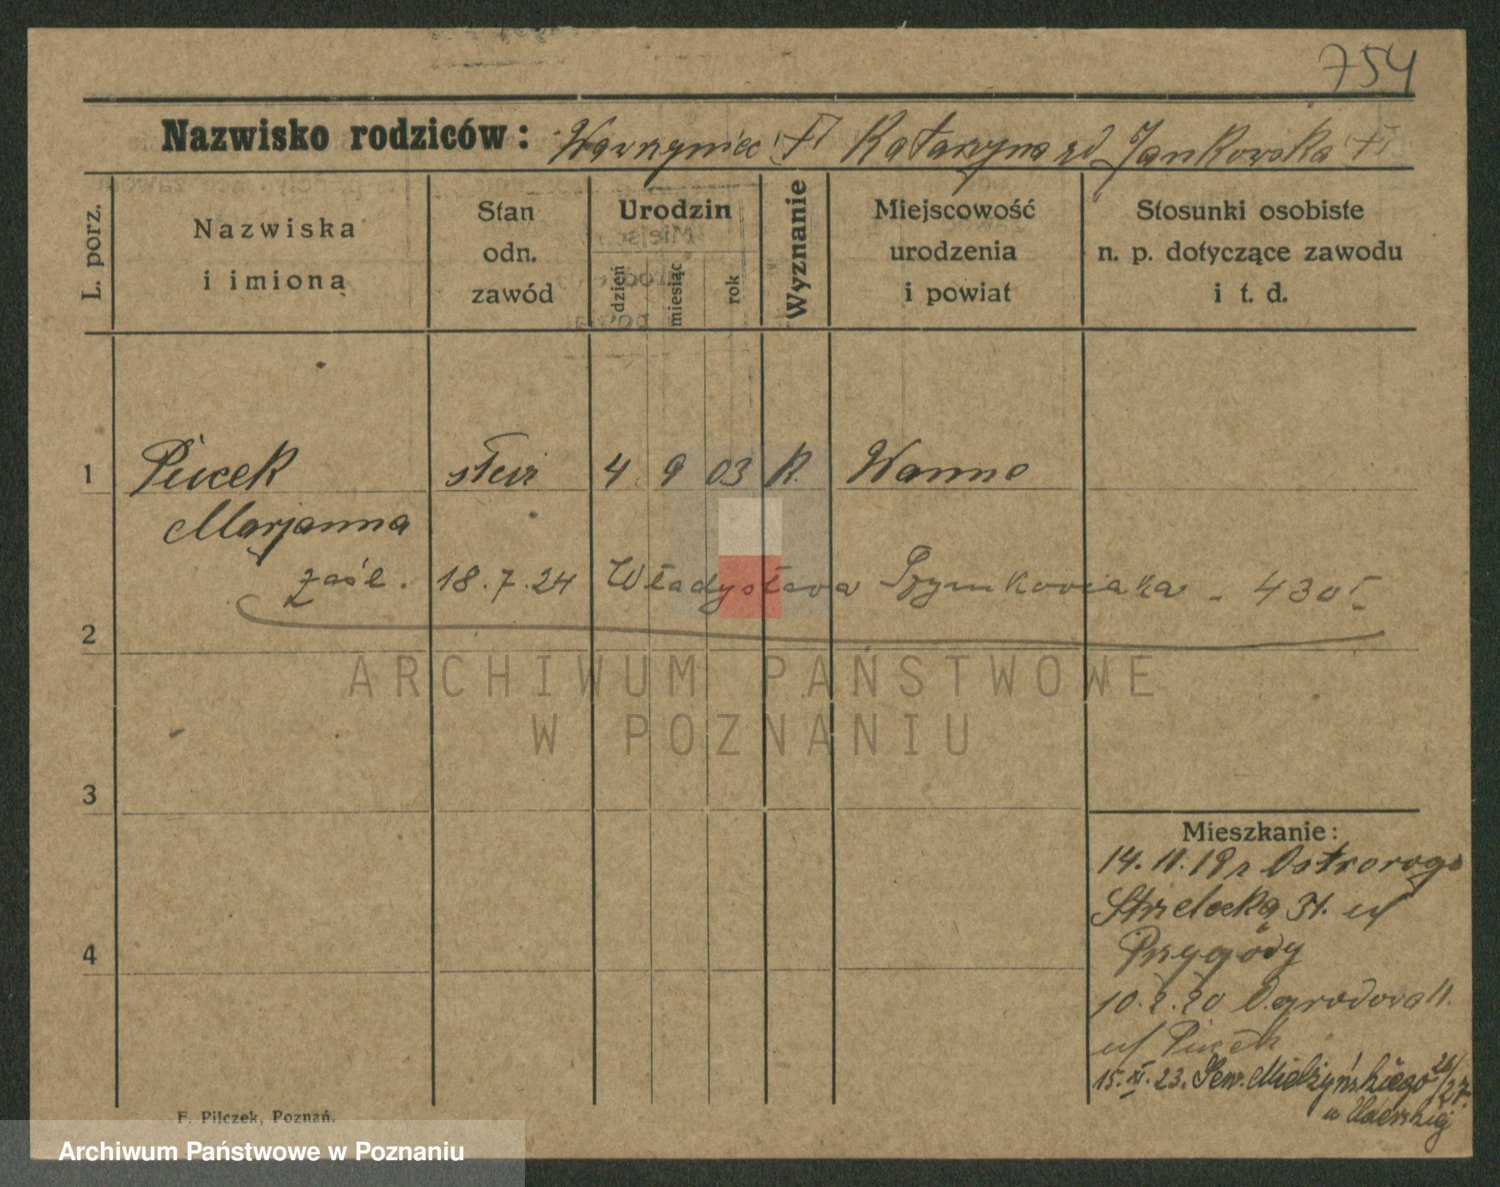 754
Nazwisko rodziców: Wawrzyniec (†) Katarzyna zd Jankowska (†)
L. porz.
Nazwiska
i imiona
Stan
odn.
zawód
Urodzin
dzień
miesiąc
rok
Wyznanie
Miejscowość
urodzenia
i powiat
Stosunki osobiste
n. p. dotyczące zawodu
i t. d.
1 Pucek 4 9 03 K.
Marjanna
zaśl. 18.7.24 Władysława Szymkowiaka - 430
2
ARCHIWUM PAŃSTWOWE
W POZNANIU
3
Mieszkanie:
14.11.19 r Ostroroga
Strzelecka 31. u/
Przygody
4
10.2.20 Ogrodowa 11.
u/ Pucek
15.XI.23. Sew. Mielżyńskiego 26/27.
F. Pilczek, Poznań.
Archiwum Państwowe w Poznaniu